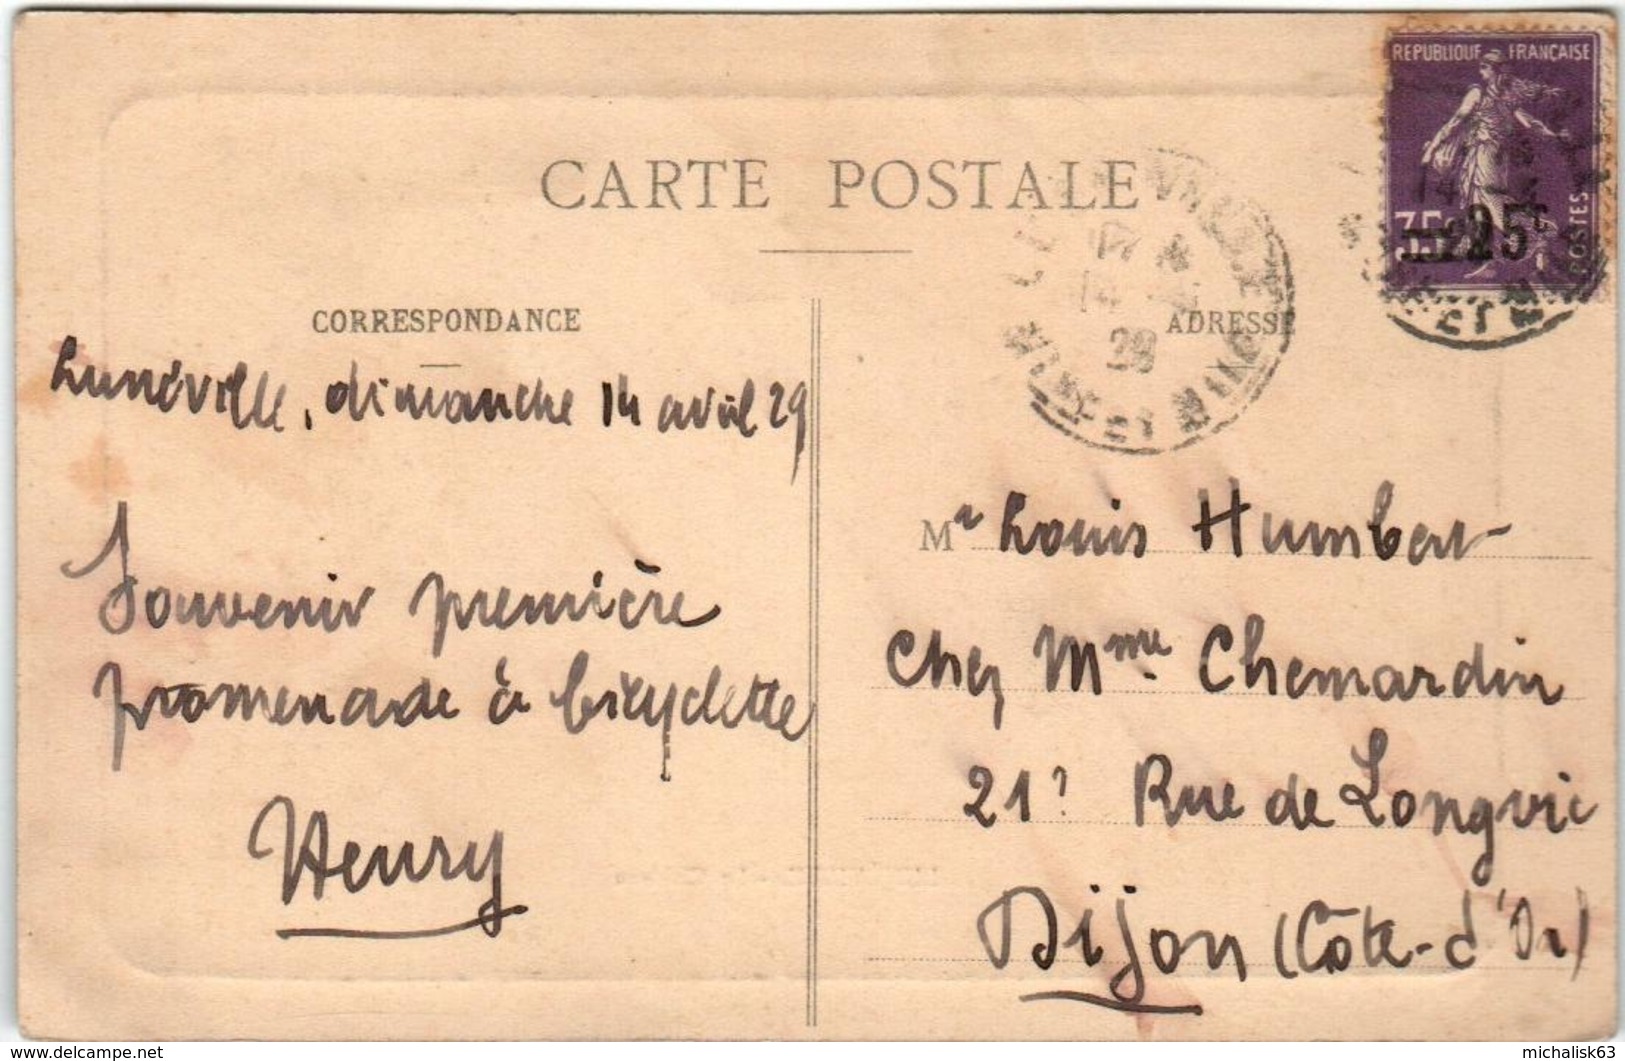 REPUBLIQUE FRANÇAISE
35
25c
POSTES
CARTE POSTALE
CORRESPONDANCE
ADRESSE
14
29
MEURTHE ET MOSELLE
Lunéville, dimanche 14 avril 29
Souvenir première
promenade à bicyclette
Henry
Mr Louis Humbert
Chez Mme Chemardin
21? Rue de Longvic
Dijon (Côte-d'Or)
www.delcampe.net
michalisk63